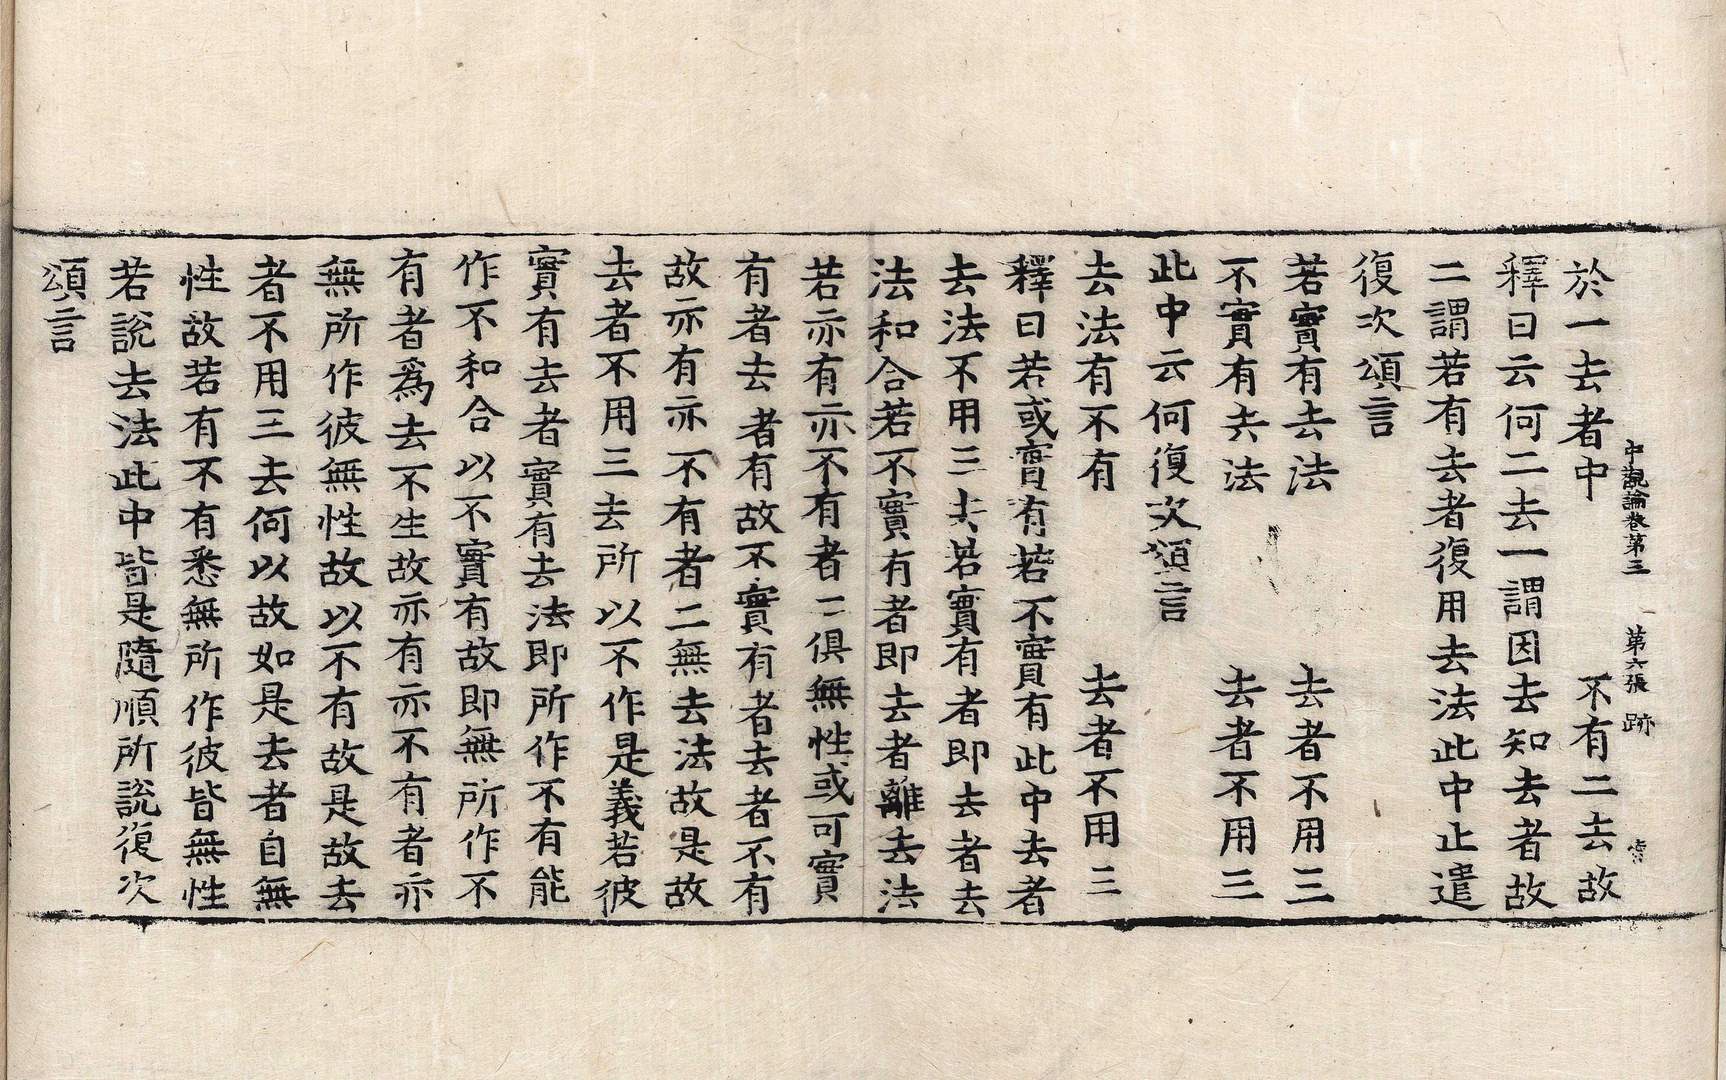 中觀論卷第三　第六張　跡
於一去者中　不有二去故
釋曰云何二去一謂因去知去者故
二謂若有去者復用去法此中止遣
復次頌言
若實有去法　去者不用三
不實有去法　去者不用三
此中云何復次頌言
去法有不有　去者不用三
釋曰若或實有若不實有此中去者
去法不用三去若實有者即去者去
法和合若不實有者即去者離去法
若亦有亦不有者二俱無性或可實
有者去者有故不實有者去者不有
故亦有亦不有者二無去法故是故
去者不用三去所以不作是義若彼
實有去者實有去法即所作不有能
作不和合以不實有故即無所作不
有者為去不生故亦有亦不有者亦
無所作彼無性故以不有故是故去
者不用三去何以故如是去者自無
性故若有不有悉無所作彼皆無性
若說去法此中皆是隨順所說復次
頌言